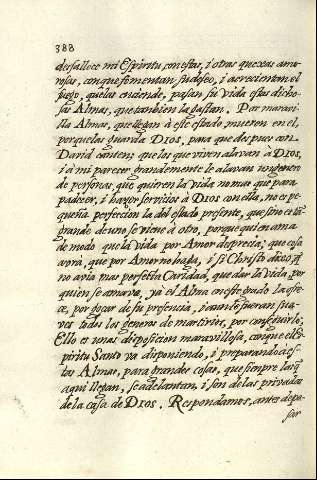 388
desfallece mi Espiritu, con estas, i otras quexas amo-
rosas, con que fomentan su deseo, i acrecientan el
fuego, que las enciende, pasan su vida estas dicho-
sas Almas, que tan bien la gastan. Por maravi-
lla Almas, que llegan à este estado mueren en el,
porque las guarda DIOS, para que despues con
David canten; que los que viven alavan à DIOS,
i à mi parecer grandemente le alavan un genero
de personas, que quieren la vida no mas que para
padecer, i hazer servicios à DIOS con ella, no es pe-
queña perfeccion la del estado presente, que sino es tã
grande de uno se viene à otro, porque quien ama
de modo que la vida por Amor desprecia; que cosa
avrà, que por Amor no haga, i si Christo dixo, q̃
no avia mas perfetta Caridad, que dar la vida por
quien se amava, yà el Alma en este grado la ofre-
ce, por gozar de su presencia, i aun le fueran sua-
ves todos los generos de martirios, por conseguirle;
Ello es unas disposicion maravillosa, con que el Es-
piritu Santo va disponiendo, i preparando à es-
tas Almas, para grandes cosas, que siempre las q̃
aqui llegan, se adelantan, i son de las privadas
de la casa de DIOS. Respondamos, antes de pa-
sar